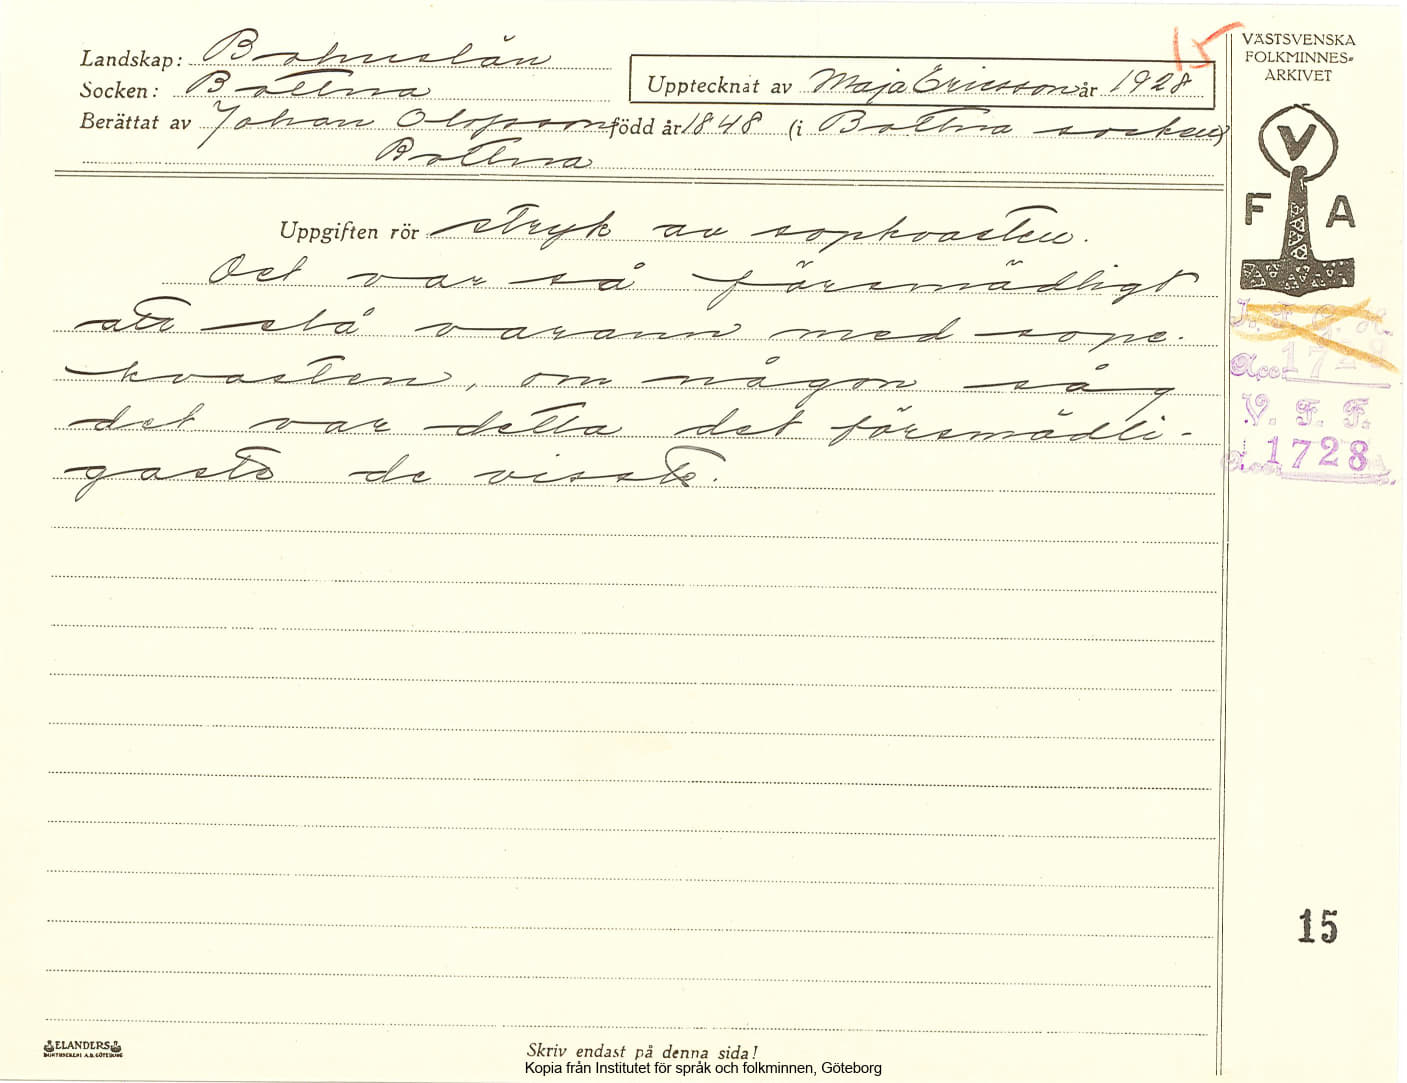 15
VÄSTSVENSKA
FOLKMINNES-
ARKIVET
Landskap: Bohuslän
Socken: Bottna
Upptecknat av Maja Ericsson år 1928
Berättat av Johan Olofsson född år 1848 (i Bottna socken)
Bottna
V
F A
Uppgiften rör stryk av sopkvasten.
Det var så försmädligt
att slå varann med sope-
kvasten, om någon såg
det var detta det försmädli-
gaste de visste.
Acc. 1728
V. F. F.
Acc. 1728
15
ELANDERS
BOKTRYCKERI A.B. GÖTEBORG
Skriv endast på denna sida!
Kopia från Institutet för språk och folkminnen, Göteborg